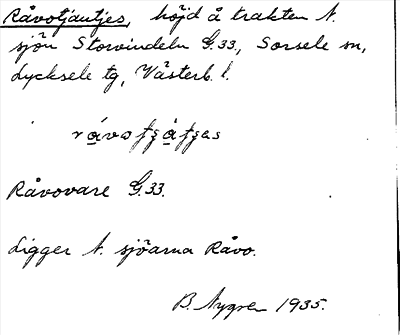 Råvotjåutjes, höjd å trakten N.
sjön Storvindeln G.33., Sorsele sn,
Lycksele tg, Västerb. l.
Råvovare G.33.
Ligger N. sjöarna Råvo.
B. Nygren 1935.